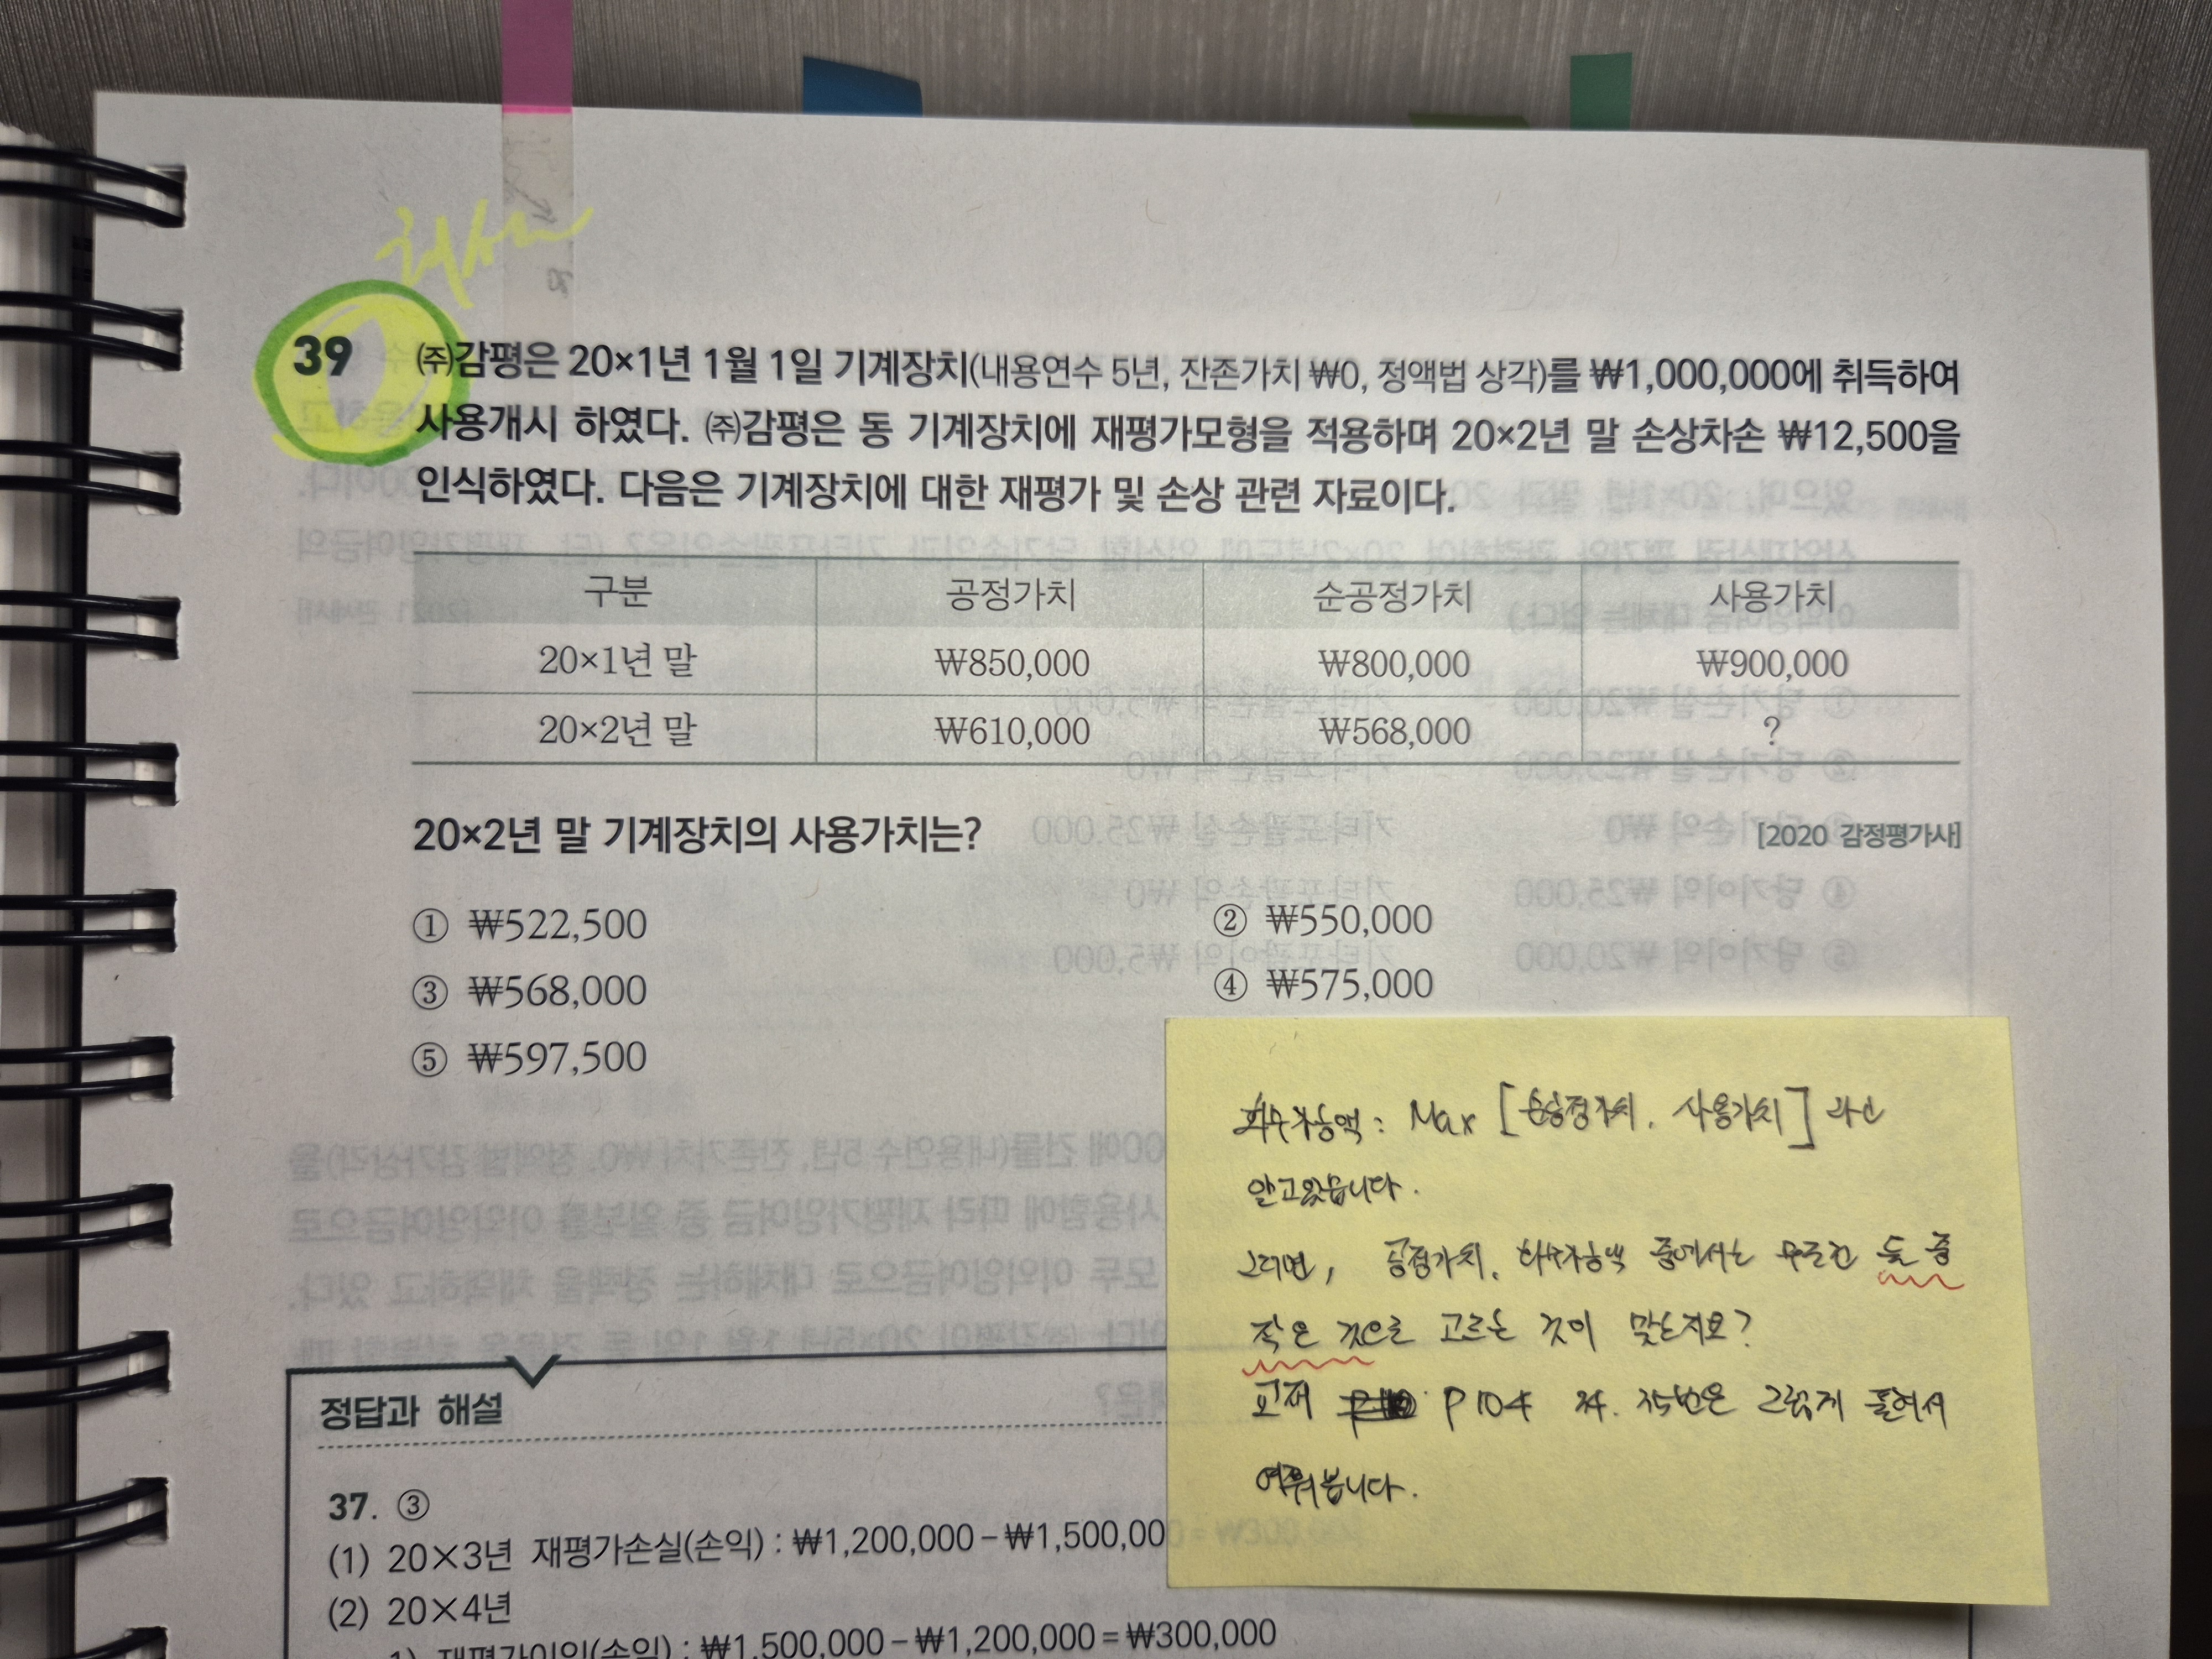 계산
39 ㈜감평은 20×1년 1월 1일 기계장치(내용연수 5년, 잔존가치 ₩0, 정액법 상각)를 ₩1,000,000에 취득하여
사용개시 하였다. ㈜감평은 동 기계장치에 재평가모형을 적용하며 20×2년 말 손상차손 ₩12,500을
인식하였다. 다음은 기계장치에 대한 재평가 및 손상 관련 자료이다.
구분 공정가치 순공정가치 사용가치
20×1년 말 ₩850,000 ₩800,000 ₩900,000
20×2년 말 ₩610,000 ₩568,000 ?
20×2년 말 기계장치의 사용가치는? [2020 감정평가사]
① ₩522,500 ② ₩550,000
③ ₩568,000 ④ ₩575,000
⑤ ₩597,500
회수가능액 : Max [순공정가치, 사용가치] 라고
알고있습니다.
그러면, 공정가치, 회수가능액 중에서는 무조건 둘 중
작은 것으로 고르는 것이 맞는지요?
교재 P 104 34. 35번은 그렇게 풀려서
여쭤봅니다.
정답과 해설
37. ③
(1) 20×3년 재평가손실(손익) : ₩1,200,000－₩1,500,00
(2) 20×4년
1) 재평가이익(손익) : ₩1,500,000－₩1,200,000＝₩300,000